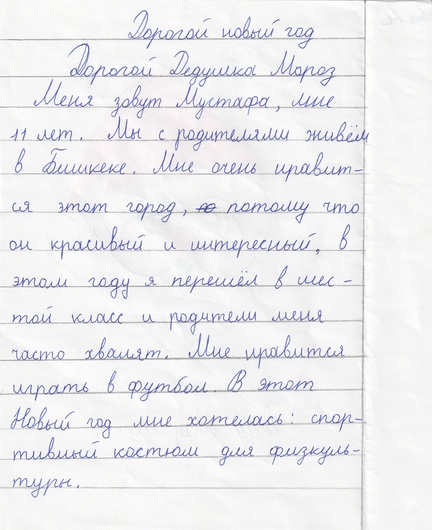 Дорогой новый год
Дорогой Дедушка Мороз
Меня зовут Мустафа, мне
11 лет. Мы с родителями живём
в Бишкеке. Мне очень нравит-
ся этот город, потому что
он красивый и интересный, в
этом году я перешёл в шес-
той класс и родители меня
часто хвалят. Мне нравится
играть в футбол. В этот
Новый год мне хотелась: спор-
тивный костюм для физкуль-
туры.